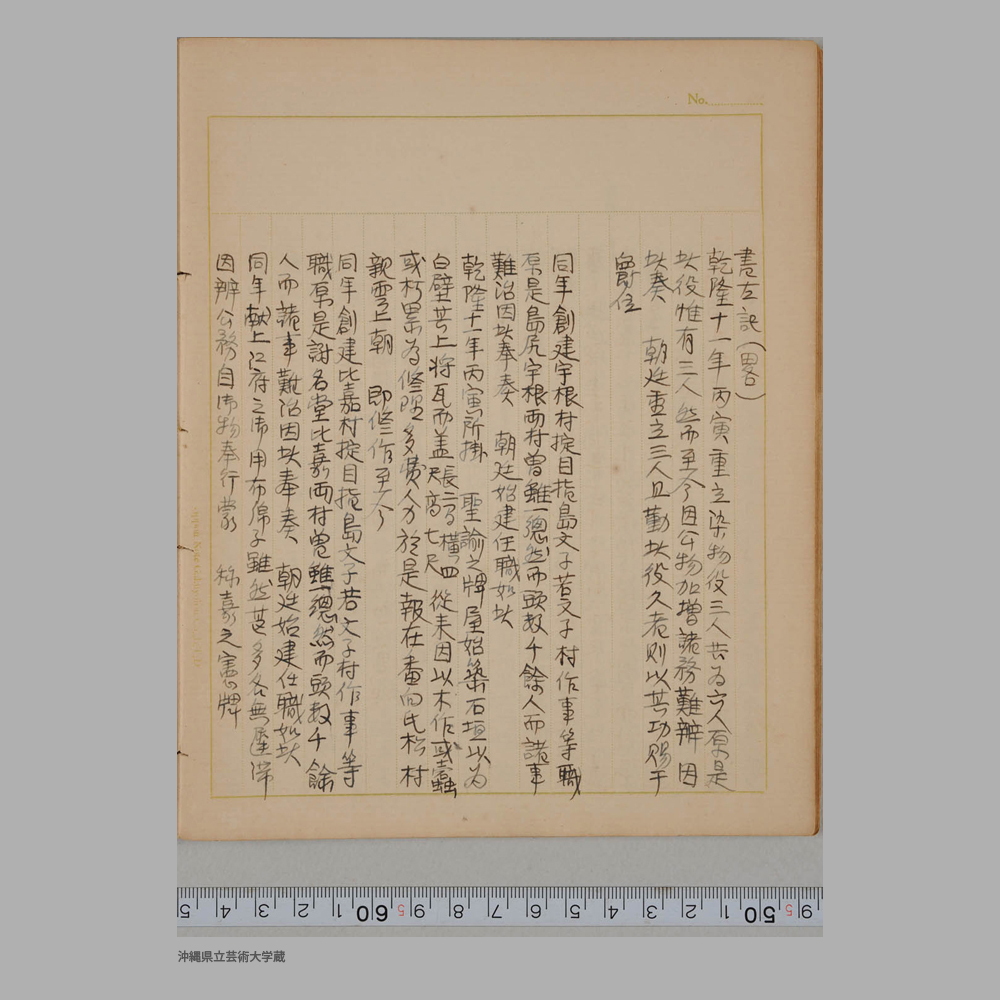 No.
書左記(畧)
乾隆十一年丙寅重立染物役三人共為六人原是
此役惟有三人然而至今因件物加増諸務難辦因
此奏 朝廷重立三人且勤此役久者則以其功賜于
爵位
同年創建宇根村掟目指島文子若文子村作事等職
原是島尻宇根両村曽雖一總然而頭数千餘人而諸事
難治因此奉奏 朝廷始建任職如此
乾隆十一年丙寅所掛 聖諭之牌屋始築石垣以為
白壁其上将瓦而蓋 張三高横四尺高七尺 従来因以木作或蟲
或朽累為修理多費人力於是報在番向氏松村
親雲上朝 即修作至今
同年創建比嘉村掟目指島文子若文子村作事等
職原是謝名堂比嘉両村曽雖一總然而頭数千餘
人而諸事難治因此奉奏 朝廷始建任職如此
同年献上江府之御用布綿子雖然甚多各無遅滞
因辦公務自御物奉行蒙 称嘉之憲牌
5 4 3 2 1 60 5 9 8 7 6 5 4 3 2 1 50 5 9
沖縄県立芸術大学蔵